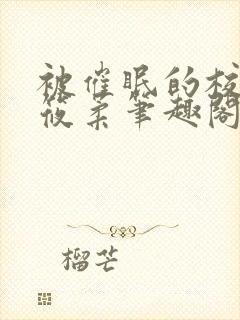 被催眠的校
筱柔笔趣阁
榴芒